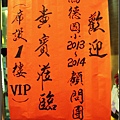 歡迎
德國小2013~2014顧問團
貴賓蒞臨
席設1樓(VIP)